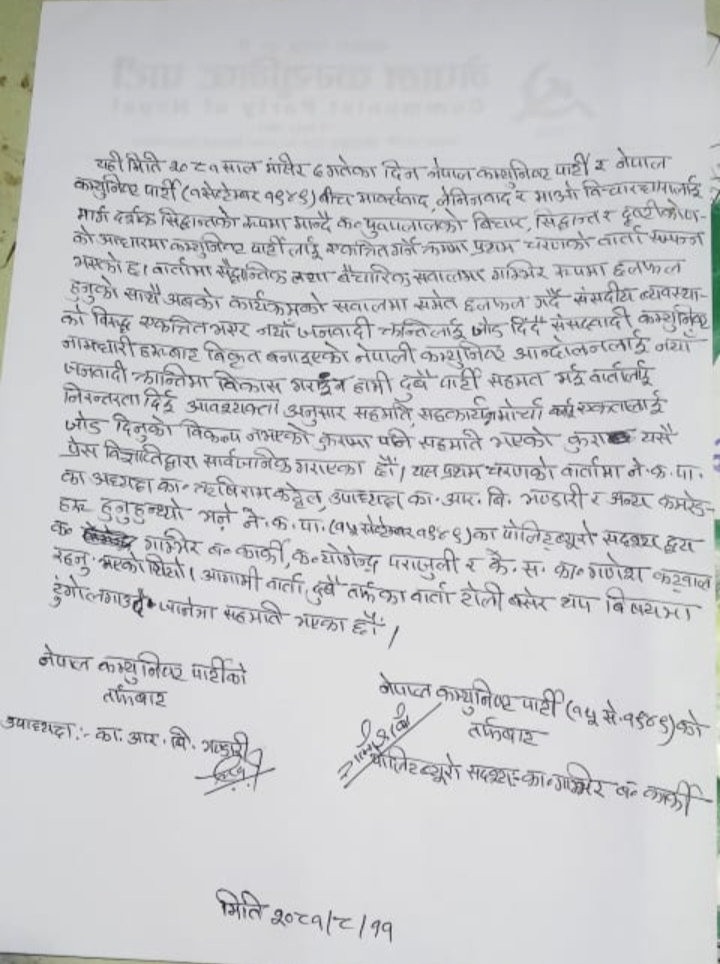 यही मिति २०८१ साल मंसिर ८ गतेका दिन नेपाल कम्युनिष्ट पार्टी र नेपाल
कम्युनिष्ट पार्टी (१५ सेप्टेम्बर १९४९) बीच मार्क्सवाद, लेनिनवाद र माओ विचारधारालाई
मार्ग दर्शक सिद्धान्तको रुपमा मान्दै क० पुष्पलालको बिचार, सिद्धान्त र दृष्टीकोण-
को आधारमा कम्युनिष्ट पार्टी लाई एकत्रित गर्ने क्रममा प्रथम चरणको वार्ता सम्पन्न
भएको छ। वार्तामा सैद्धान्तिक तथा बैचारिक सवालमा गम्भिर रुपमा छलफल
हुनुको साथै अबको कार्यक्रमको सवालमा समेत छलफल गर्दै संसदीय ब्यवस्था-
को बिरुद्ध एकत्रित भएर नयाँ जनवादी क्रान्तिलाई जोड दिँदै संसदवादी कम्युनिष्ट
नामधारी हरुबाट बिकृत बनाइएको नेपाली कम्युनिष्ट आन्दोलनलाई नयाँ
जनवादी क्रान्तिमा बिकास गराईन हामी दुबै पार्टी सहमत भई वार्तालाई
निरन्तरता दिई आवश्यकता अनुसार सहमति, सहकार्य, मोर्चा एकतालाई
जोड दिनुको विकल्प नभएको कुरामा पनि सहमति भएको कुरा यसै
प्रेस विज्ञप्तिद्वारा सार्वजनिक गराएका छौं। यस प्रथम चरणको वार्तामा ने.क.पा.
का अध्यक्ष का॰ ऋषिराम कट्टेल, उपाध्यक्ष का. आर. बि. भण्डारी र अन्य कमरेड-
हरु हुनुहुन्थ्यो भने ने.क.पा. (१५ सेप्टेम्बर १९४९) का पोलिटब्युरो सदस्य द्वय
क॰ गम्भिर ब॰ कार्की, क॰ योगेन्द्र पराजुली र के. स. का॰ गणेश
रहनु भएको थियो। आगामी वार्ता दुबै तर्फ का वार्ता टोली बसेर थप बिषयमा
टुंगोल जानेमा सहमति भएका छौं।
नेपाल कम्युनिष्ट पार्टीको
तर्फबाट
उपाध्यक्ष :- का. आर. बि. भण्डारी
नेपाल कम्युनिष्ट पार्टी (१५ से. १९४९) को
तर्फबाट
पोलिटब्युरो सदस्य:- का॰ गम्भिर ब॰ कार्की
मिति २०८१/८/११